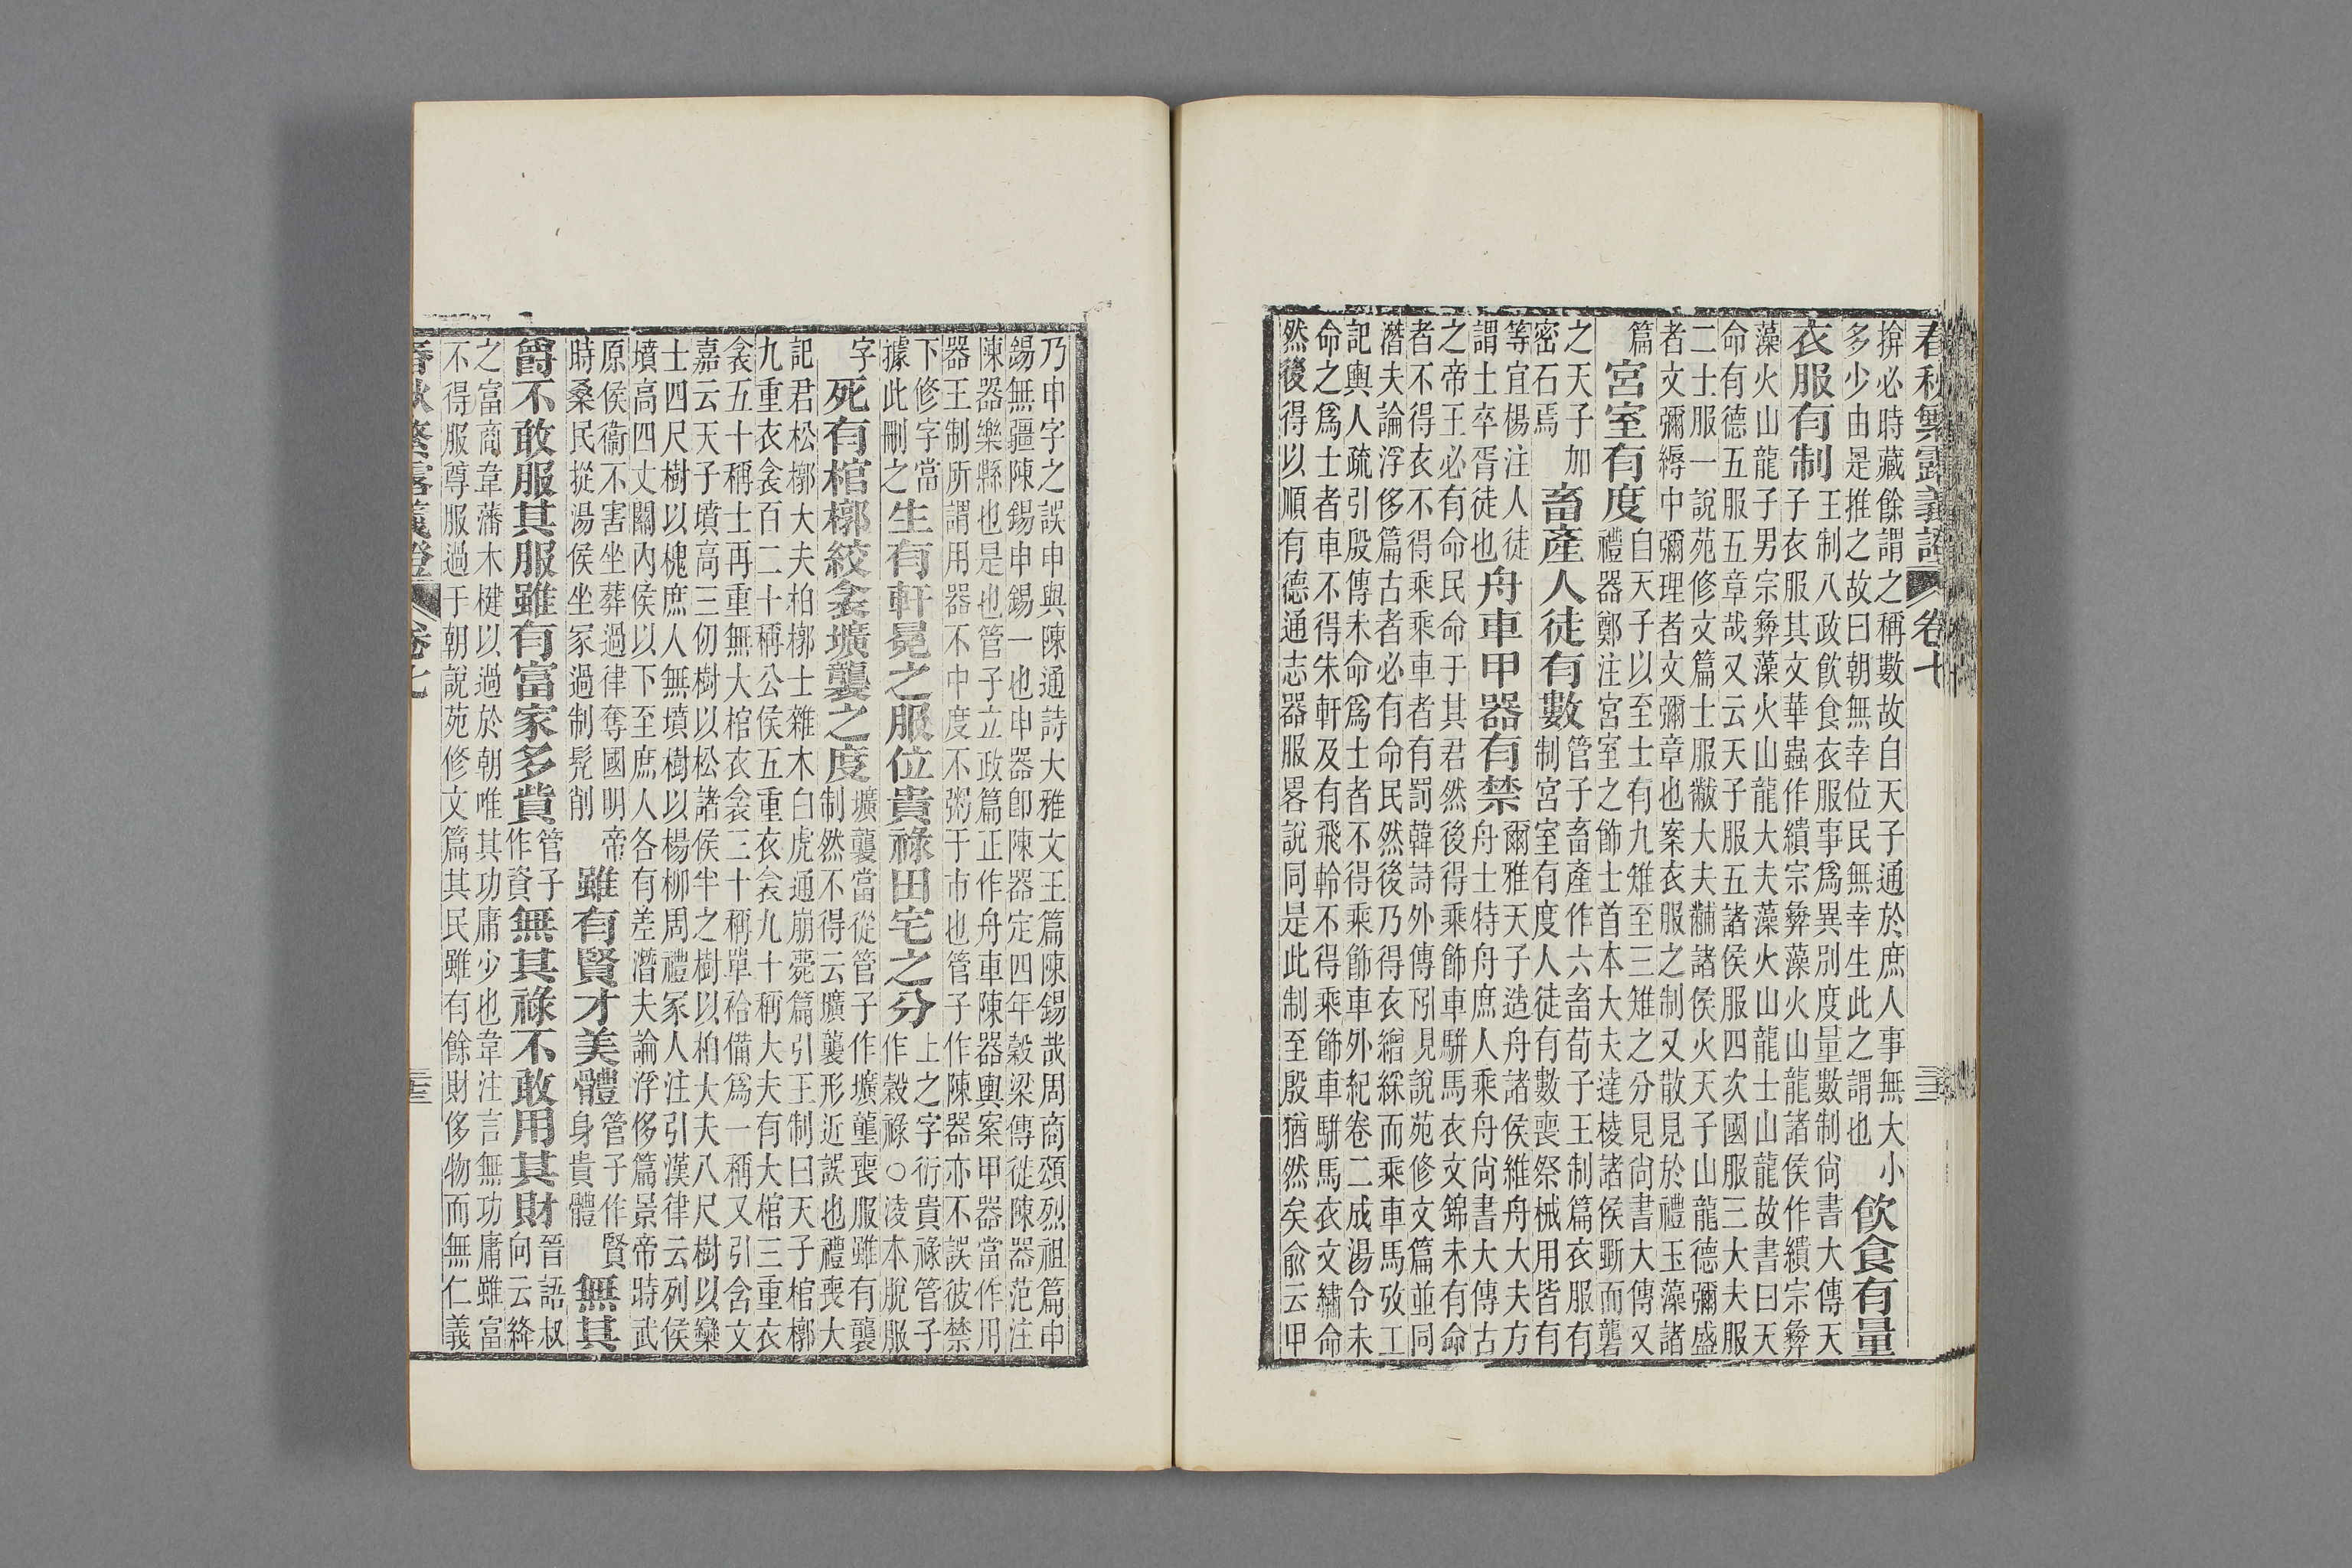 春秋繁露義證 卷七
揜必時藏餘謂之稱數故自天子通於庶人事無大小
多少由是推之故曰朝無幸位民無幸生此之謂也
飲食有量
衣服有制
王制八政飲食衣服事爲異別度量數制尙書大傳天
子衣服其文華蟲作繢宗彝藻火山龍諸侯作繢宗彝
藻火山龍子男宗彝藻火山龍大夫藻火山龍士山龍故書曰天
命有德五服五章哉又云天子服五諸侯服四次國服三大夫服
二士服一說苑修文篇士服黻大夫黼諸侯火天子山龍德彌盛
者文彌縟中彌理者文彌章也案衣服之制又散見於禮玉藻諸
篇
宮室有度
自天子以至士有九雉至三雉之分見尙書大傳又
禮器鄭注宮室之飾士首本大夫達棱諸侯斲而礱
之天子加
密石焉
畜產人徒有數
管子畜產作六畜荀子王制篇衣服有
制宮室有度人徒有數喪祭械用皆有
等宜楊注人徒
謂士卒胥徒也
舟車甲器有禁
爾雅天子造舟諸侯維舟大夫方
舟士特舟庶人乘舟尙書大傳古
之帝王必有命民命于其君然後得乘飾車騈馬衣文錦未有命
者不得衣不得乘乘車者有罰韓詩外傳引見說苑修文篇並同
潛夫論浮侈篇古者必有命民然後乃得衣繒綵而乘車馬攷工
記輿人疏引殷傳未命爲士者不得乘飾車外紀卷二成湯令未
命之爲士者車不得朱軒及有飛軨不得乘飾車騈馬衣文繡命
然後得以順有德通志器服畧說同是此制至殷猶然矣兪云甲
乃申字之誤申與陳通詩大雅文王篇陳錫哉周商頌烈祖篇申
錫無疆陳錫申錫一也申器卽陳器定四年穀梁傳徙陳器范注
陳器樂縣也是也管子立政篇正作舟車陳器輿案甲器當作用
器王制所謂用器不中度不粥于市也管子作陳器亦不誤彼禁
下修字當
據此刪之
生有軒冕之服位貴祿田宅之分
上之字衍貴祿管子
作穀祿○淩本脫服
字
死有棺槨絞衾壙襲之度
壙襲當從管子作壙壟喪服雖有襲
制然不得云壙襲形近誤也禮喪大
記君松槨大夫柏槨士雜木白虎通崩薨篇引王制曰天子棺槨
九重衣衾百二十稱公侯五重衣衾九十稱大夫有大棺三重衣
衾五十稱士再重無大棺衣衾三十稱單袷備爲一稱又引含文
嘉云天子墳高三仞樹以松諸侯半之樹以柏大夫八尺樹以欒
士四尺樹以槐庶人無墳樹以楊柳周禮冢人注引漢律云列侯
墳高四丈關內侯以下至庶人各有差潛夫論浮侈篇景帝時武
原侯衞不害坐葬過律奪國明帝
時桑民摐湯侯坐冢過制髠削
雖有賢才美體
管子作賢
身貴體
無其
爵不敢服其服雖有富家多貲
管子
作資
無其祿不敢用其財
晉語叔
向云絳
之富商韋藩木楗以過於朝唯其功庸少也韋注言無功庸雖富
不得服尊服過于朝說苑修文篇其民雖有餘財侈物而無仁義
春秋繁露義證 卷七